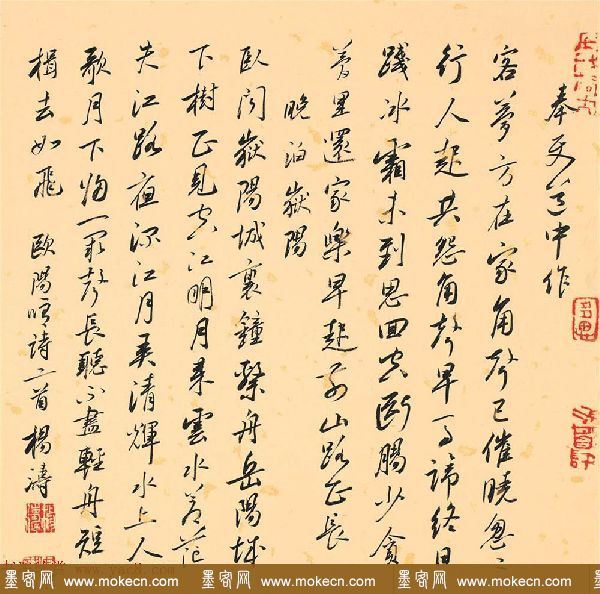 奉使道中作
客夢方在家角聲已催曉忽忽
行人起共怨角聲早馬蹄終日
踐冰霜未到思回空斷腸少貪
夢里還家樂早起前山路正長
晚泊嶽陽
臥聞嶽陽城裏鐘繫舟岳陽城
下樹正見空江明月來雲水蒼茫
失江路夜深江月弄清輝水上人
歌月下歸一闋聲長聽不盡輕舟短
楫去如飛 歐陽脩詩二首 楊濤
墨客网 www.mokecn.com 墨客网 www.mokecn.com 墨客网 www.mokecn.com